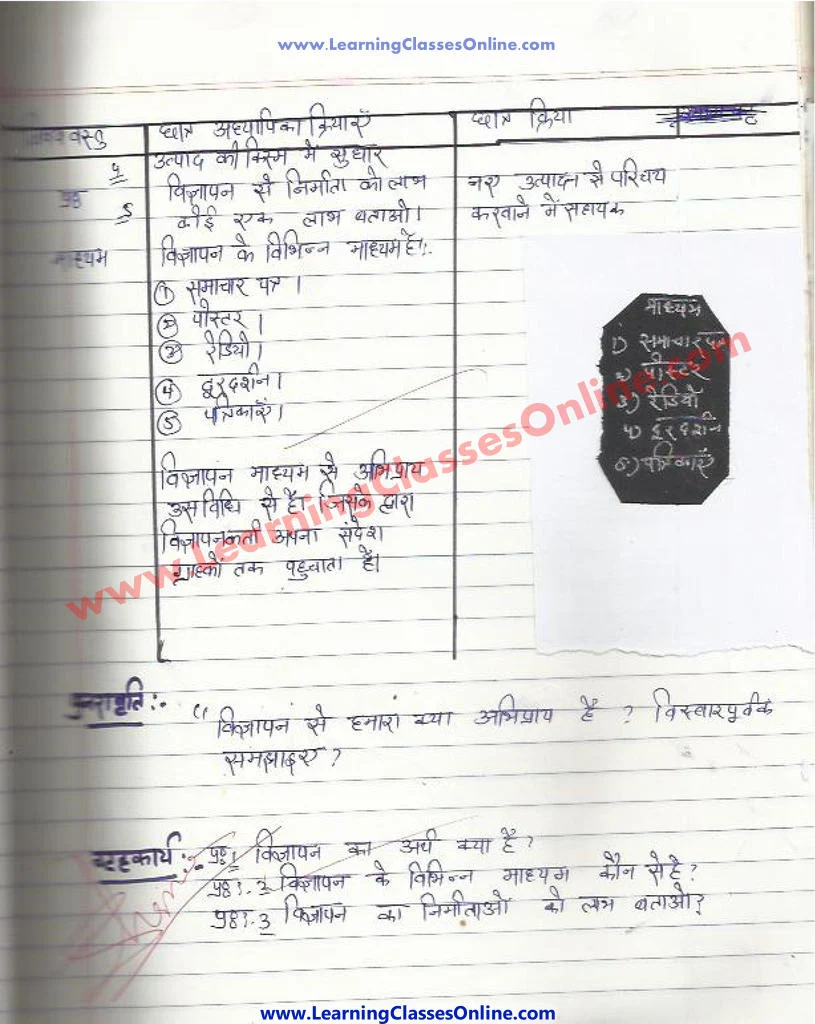 www.LearningClassesOnline.com
विषय वस्तु छात्र अध्यापिका क्रियाएँ छात्र क्रिया
4 उत्पाद की किस्म में सुधार
प्रश्न विज्ञापन से निर्माता को लाभ नए उत्पादन से परिचय
5 कोई एक लाभ बताओ। करवाने में सहायक
माध्यम विज्ञापन के विभिन्न माध्यम है:-
① समाचार पत्र ।
② पोस्टर ।
③ रेडियो।
④ दूरदर्शन।
⑤ पत्रिकाएँ।
माध्यम
1) समाचार पत्र
2) पोस्टर
3) रेडियो
4) दूरदर्शन
5) पत्रिकाएँ
विज्ञापन माध्यम से अभिप्राय
उस विधि से है। जिसके द्वारा
विज्ञापनकर्ता अपना संदेश
ग्राहकों तक पहुचाता है।
www.LearningClassesOnline.com
पुनरावृति :- " विज्ञापन से हमारा क्या अभिप्राय है ? विस्तारपूर्वक
समझाइए ?
गृहकार्य :- प्रश्न.1 विज्ञापन का अर्थ क्या है ?
प्रश्न.2 विज्ञापन के विभिन्न माध्यम कौन से है ?
प्रश्न.3 विज्ञापन का निर्माताओ को लाभ बताओ ?
www.LearningClassesOnline.com